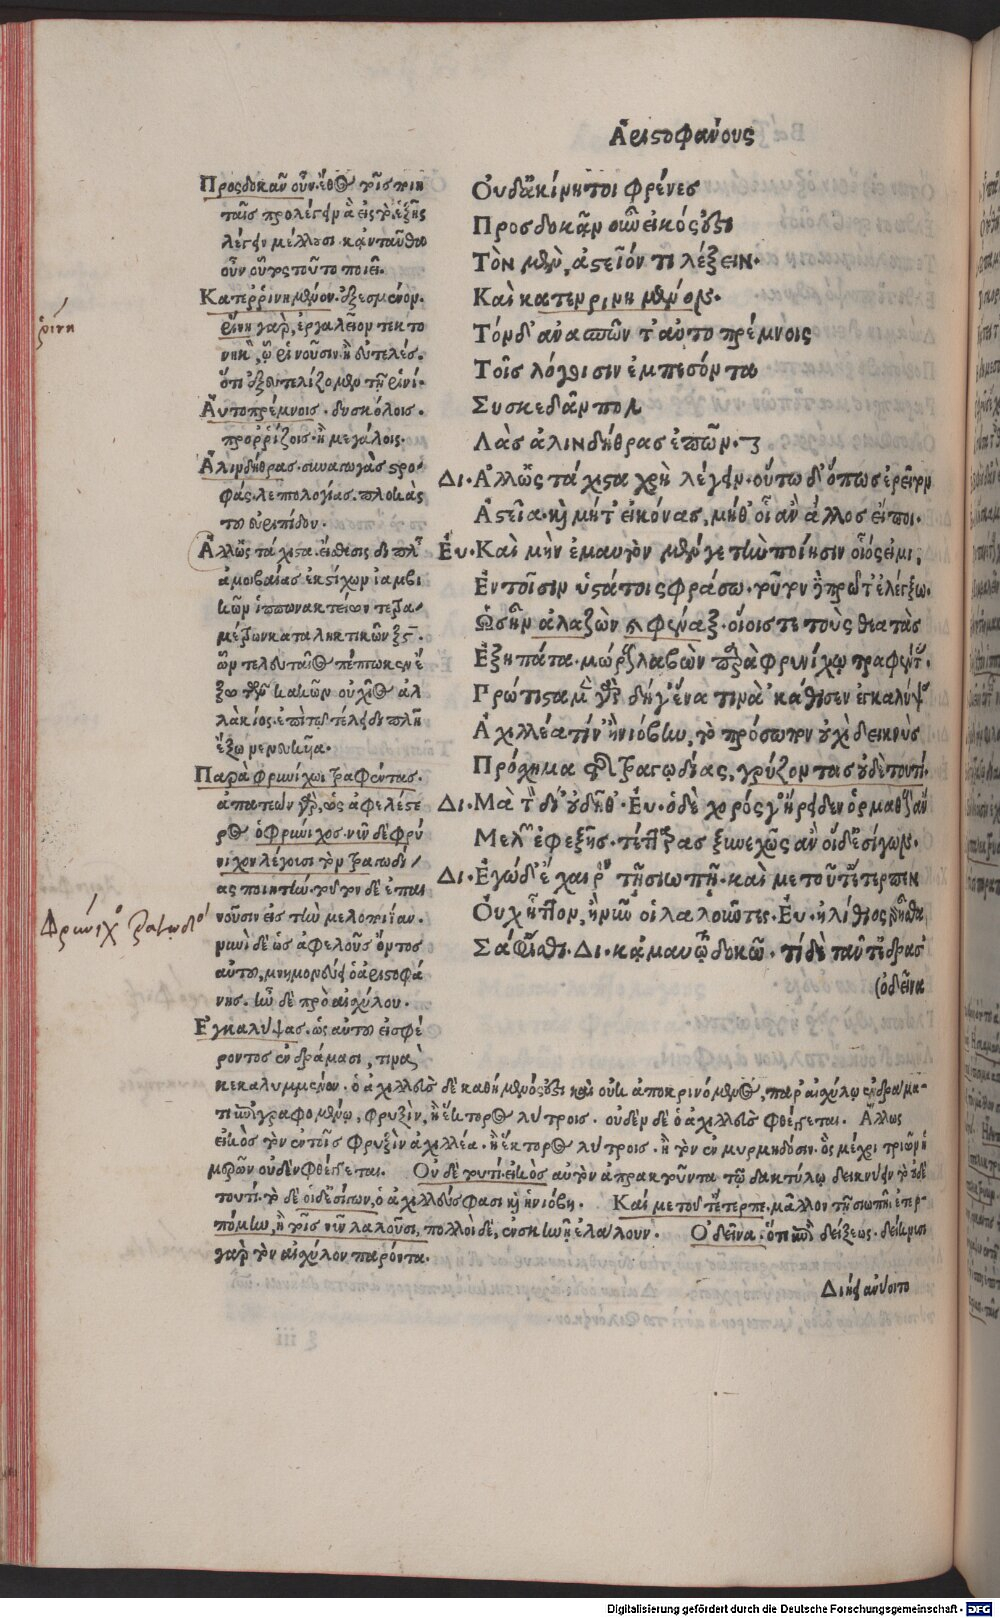 Ἀριστοφάνους
Οὐδ' ἀκίνητοι φρένες
Προσδοκᾶν οὖν εἰκός ἐστι
Τὸν μὲν, ἀστεῖόν τι λέξειν.
Καὶ κατερρινημένον.
Τὸν δ' ἀνασπῶντ' αὐτοπρέμνοις
Τοῖς λόγοισιν ἐμπεσόντα
Συσκεδᾶν πολ
Λὰς ἀλινδήθρας ἐπῶν.
ΔΙ. Ἀλλ' ὡς τάχιστα χρὴ λέγειν. οὕτω δ' ὅπως ἐρεῖτον
Ἀστεῖα. καὶ μήτ' εἰκόνας, μήθ' οἷ' ἂν ἄλλος εἴποι.
Ἐυ. Καὶ μὴν ἐμαυτὸν μέν γε τὴν ποίησιν οἷός εἰμι,
Ἐν τοῖσιν ὑστάτοις φράσω. τοῦτον δὲ πρῶτ' ἐλέγξω.
Ὡς ἦν ἀλαζὼν καὶ φέναξ. οἵοις τε τοὺς θεατὰς
Ἐξηπάτα. μώρους λαβὼν παρὰ φρυνίχῳ τραφέντας.
Πρώτιστα μὲν γὰρ δὴ γ' ἕνα τινὰ κάθισεν ἐγκαλύψας
Ἀχιλλέα τίν' ἢ νιόβην, τὸ πρόσωπον οὐχὶ δεικνὺς
Πρόσχημα τῆς τραγῳδίας, γρύζοντας οὐδὲ τουτί.
ΔΙ. Μὰ τὸν δί' οὐδῆθ'. Ἐυ. ὁ δὲ χορός γ' ἤρειδεν ὁρμαθοὺς ἂν
Μελῶν ἐφεξῆς. τέτταρας ξυνεχῶς ἂν οἱ δ' ἐσίγων.
ΔΙ. Ἐγὼ δ' ἔχαιρον τῇ σιωπῇ. καί με τοῦτ' ἔτερπεν
Οὐχ ἧττον, ἢ νῦν οἱ λαλοῦντες. Ἐυ. ἠλίθιος γὰρ ἦσθα
Σάφ' ἴσθι. ΔΙ. κἀμαυτῷ δοκῶ. τί δὲ ταῦτ' ἔδρασ'
(ὁ δεῖνα
Προσδοκᾶν οὖν. ἔθος τοῖς ποιη
ταῖς προλέγειν ἃ εἰς τὸ ἑξῆς
λέγειν μέλλουσι. κἀνταῦθα
οὖν οὕτως τοῦτο ποιεῖ.
Κατερρινημένον. ἐξεσμένον.
ῥίνη γὰρ, ἐργαλεῖον τεκτο
νικὸν, ᾧ ῥινοῦσιν. ἢ εὐτελές.
ὅτι ἐξευτελίζομεν τῇ ῥίνῃ.
Αὐτοπρέμνοις. δυσκόλοις.
προρρίζοις. ἢ μεγάλοις.
Ἀλινδήθρας. συναγωγὰς στρο
φάς. λεπτολογίας. πλοκὰς
τοῦ εὐριπίδου.
Ἀλλ' ὡς τάχιστα. εἴσθεσις διπλῆ
ἀμοιβαίας ἐκ στίχων ἰαμβι
κῶν ἱππωνακτείων τετρα
μέτρων καταληκτικῶν
ὧν τελευταῖος πέπτωκεν ἔ
ξω τῶν κακῶν οὐχὶ θἀλ
λάκιος. ἐπὶ τοῦ τέλους διπλῆ
ἔξω νενευκυῖα.
Παρὰ φρυνίχῳ τραφέντας.
ἀπατεὼν γὰρ, ὡς ἀφελέστε
ρος ὁ φρύνιχος. νῦν δὲ φρύ
νιχον λέγοισι τὸν τραγῳδί
ας ποιητὴν. τοῦτον δὲ ἐπαι
νοῦσιν εἰς τὴν μελοποιΐαν.
νυνὶ δὲ ὡς ἀφελοῦς ὄντος
αὐτοῦ, μνημονεύει ὁ ἀριστοφά
νης. ἦν δὲ πρὸ αἰσχύλου.
Ἐγκαλύψας. ὡς αὐτοῦ εἰσφέ
ροντος ἐν δράμασι, τινὰς
κεκαλυμμένον. ὁ ἀχιλλεὺς δὲ καθήμενός ἐστι καὶ οὐκ ἀποκρινόμενος, παρ' αἰσχύλῳ ἐν δράμα
τι ἐπιγραφομένῳ, φρυξὶν, ἢ ἕκτορος λύτροις. οὐδὲν δὲ ὁ ἀχιλλεὺς φθέγγεται. Ἄλλως
εἰκὸς τὸν ἐν τοῖς φρυξὶν ἀχιλλέα. ἢ ἕκτορος λύτροις. ἢ τὸν ἐν μυρμηδόσιν. ὃς μέχρι τριῶν ἡ
μερῶν οὐδὲν φθέγγεται. Οὐδὲ τουτί. εἰκὸς αὐτὸν ἀποκροῦντα τῷ δακτύλῳ δεικνύειν τὸ οὐδὲ
τουτί. τὸ δὲ οἱ δ' ἐσίγων, ὁ ἀχιλλεύς φασι καὶ ἡ νιόβη. Καί με τοῦτ' ἔτερπε. μᾶλλον τῇ σιωπῇ. ἐτερ
πόμην, ἢ τοῖς νῦν λαλοῦσι, πολλοὶ δὲ, ἐν σκηνῇ ἐλάλουν. Ὁ δεῖνα. ὅτι ἐπὶ δείξεως. δείκνυσι
γὰρ τὸν αἰσχύλον παρόντα.
Διηξανύοιτο
ῥίνη
Φρύνιχος τραγῳδός
Digitalisierung gefördert durch die Deutsche Forschungsgemeinschaft - DFG